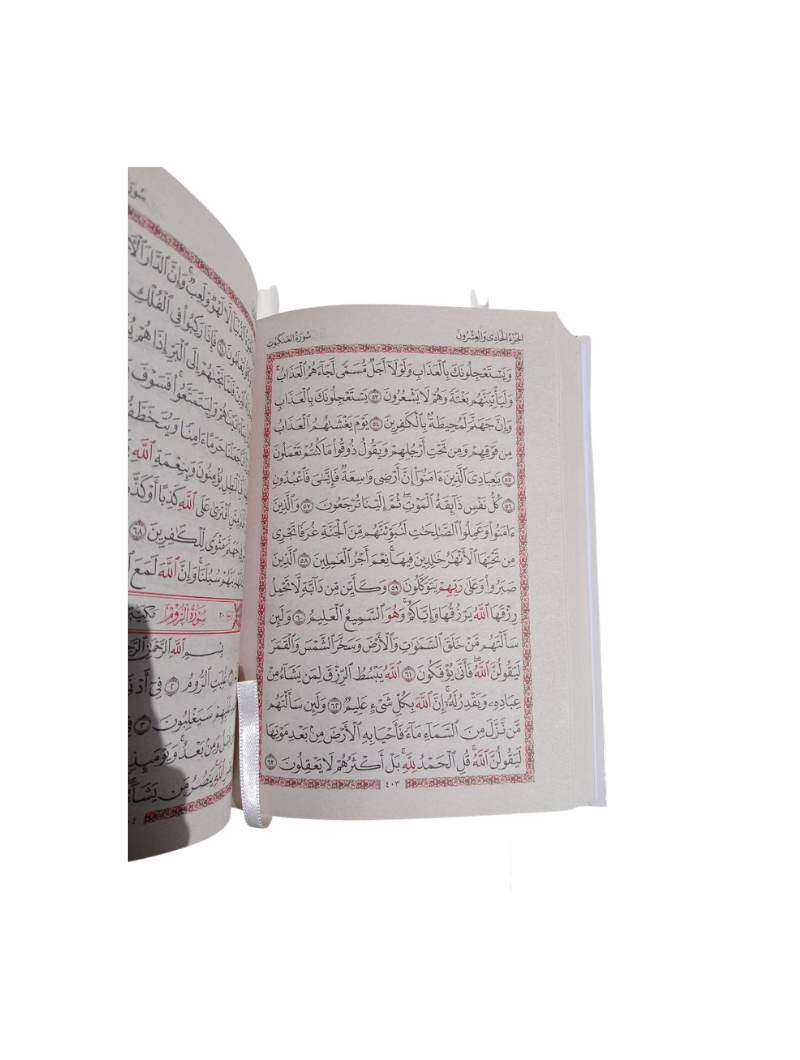 الجزء الحادي والعشرون
سورة العنكبوت
وَيَسْتَعْجِلُونَكَ بِٱلْعَذَابِ وَلَوْلَآ أَجَلٌ مُّسَمًّى لَّجَآءَهُمُ ٱلْعَذَابُ
وَلَيَأْتِيَنَّهُم بَغْتَةً وَهُمْ لَا يَشْعُرُونَ ٥٣ يَسْتَعْجِلُونَكَ بِٱلْعَذَابِ
وَإِنَّ جَهَنَّمَ لَمُحِيطَةٌۢ بِٱلْكَٰفِرِينَ ٥٤ يَوْمَ يَغْشَىٰهُمُ ٱلْعَذَابُ
مِن فَوْقِهِمْ وَمِن تَحْتِ أَرْجُلِهِمْ وَيَقُولُ ذُوقُوا۟ مَا كُنتُمْ تَعْمَلُونَ
٥٥ يَٰعِبَادِىَ ٱلَّذِينَ ءَامَنُوٓا۟ إِنَّ أَرْضِى وَٰسِعَةٌ فَإِيَّٰىَ فَٱعْبُدُونِ
٥٦ كُلُّ نَفْسٍ ذَآئِقَةُ ٱلْمَوْتِ ۖ ثُمَّ إِلَيْنَا تُرْجَعُونَ ٥٧ وَٱلَّذِينَ
ءَامَنُوا۟ وَعَمِلُوا۟ ٱلصَّٰلِحَٰتِ لَنُبَوِّئَنَّهُم مِّنَ ٱلْجَنَّةِ غُرَفًا تَجْرِى
مِن تَحْتِهَا ٱلْأَنْهَٰرُ خَٰلِدِينَ فِيهَا ۚ نِعْمَ أَجْرُ ٱلْعَٰمِلِينَ ٥٨ ٱلَّذِينَ
صَبَرُوا۟ وَعَلَىٰ رَبِّهِمْ يَتَوَكَّلُونَ ٥٩ وَكَأَيِّن مِّن دَآبَّةٍ لَّا تَحْمِلُ
رِزْقَهَا ٱللَّهُ يَرْزُقُهَا وَإِيَّاكُمْ ۚ وَهُوَ ٱلسَّمِيعُ ٱلْعَلِيمُ ٦٠ وَلَئِن
سَأَلْتَهُم مَّنْ خَلَقَ ٱلسَّمَٰوَٰتِ وَٱلْأَرْضَ وَسَخَّرَ ٱلشَّمْسَ وَٱلْقَمَرَ
لَيَقُولُنَّ ٱللَّهُ ۖ فَأَنَّىٰ يُؤْفَكُونَ ٦١ ٱللَّهُ يَبْسُطُ ٱلرِّزْقَ لِمَن يَشَآءُ مِنْ
عِبَادِهِۦ وَيَقْدِرُ لَهُۥٓ ۚ إِنَّ ٱللَّهَ بِكُلِّ شَىْءٍ عَلِيمٌ ٦٢ وَلَئِن سَأَلْتَهُم
مَّن نَّزَّلَ مِنَ ٱلسَّمَآءِ مَآءً فَأَحْيَا بِهِ ٱلْأَرْضَ مِنۢ بَعْدِ مَوْتِهَا
لَيَقُولُنَّ ٱللَّهُ ۚ قُلِ ٱلْحَمْدُ لِلَّهِ ۚ بَلْ أَكْثَرُهُمْ لَا يَعْقِلُونَ ٦٣
٤٠٣
لَهْوٌ وَلَعِبٌ ۚ وَإِنَّ ٱلدَّارَ
فَإِذَا رَكِبُوا۟ فِى ٱلْفُلْكِ
إِلَى ٱلْبَرِّ إِذَا هُمْ
وَلِيَتَمَتَّعُوا۟ ۖ فَسَوْفَ
حَرَمًا ءَامِنًا وَيُتَخَطَّفُ
يُؤْمِنُونَ وَبِنِعْمَةِ ٱللَّهِ
ٱفْتَرَىٰ عَلَى ٱللَّهِ كَذِبًا أَوْ
جَهَنَّمَ مَثْوًى لِّلْكَٰفِرِينَ ٦٨
سُبُلَنَا ۚ وَإِنَّ ٱللَّهَ لَمَعَ
سورة الروم
بِسْمِ ٱللَّهِ ٱلرَّحْمَٰنِ
غُلِبَتِ ٱلرُّومُ ٢ فِىٓ
سَيَغْلِبُونَ ٣
وَمِنۢ بَعْدُ ۚ وَيَوْمَئِذٍ
يَنصُرُ مَن يَشَآءُ